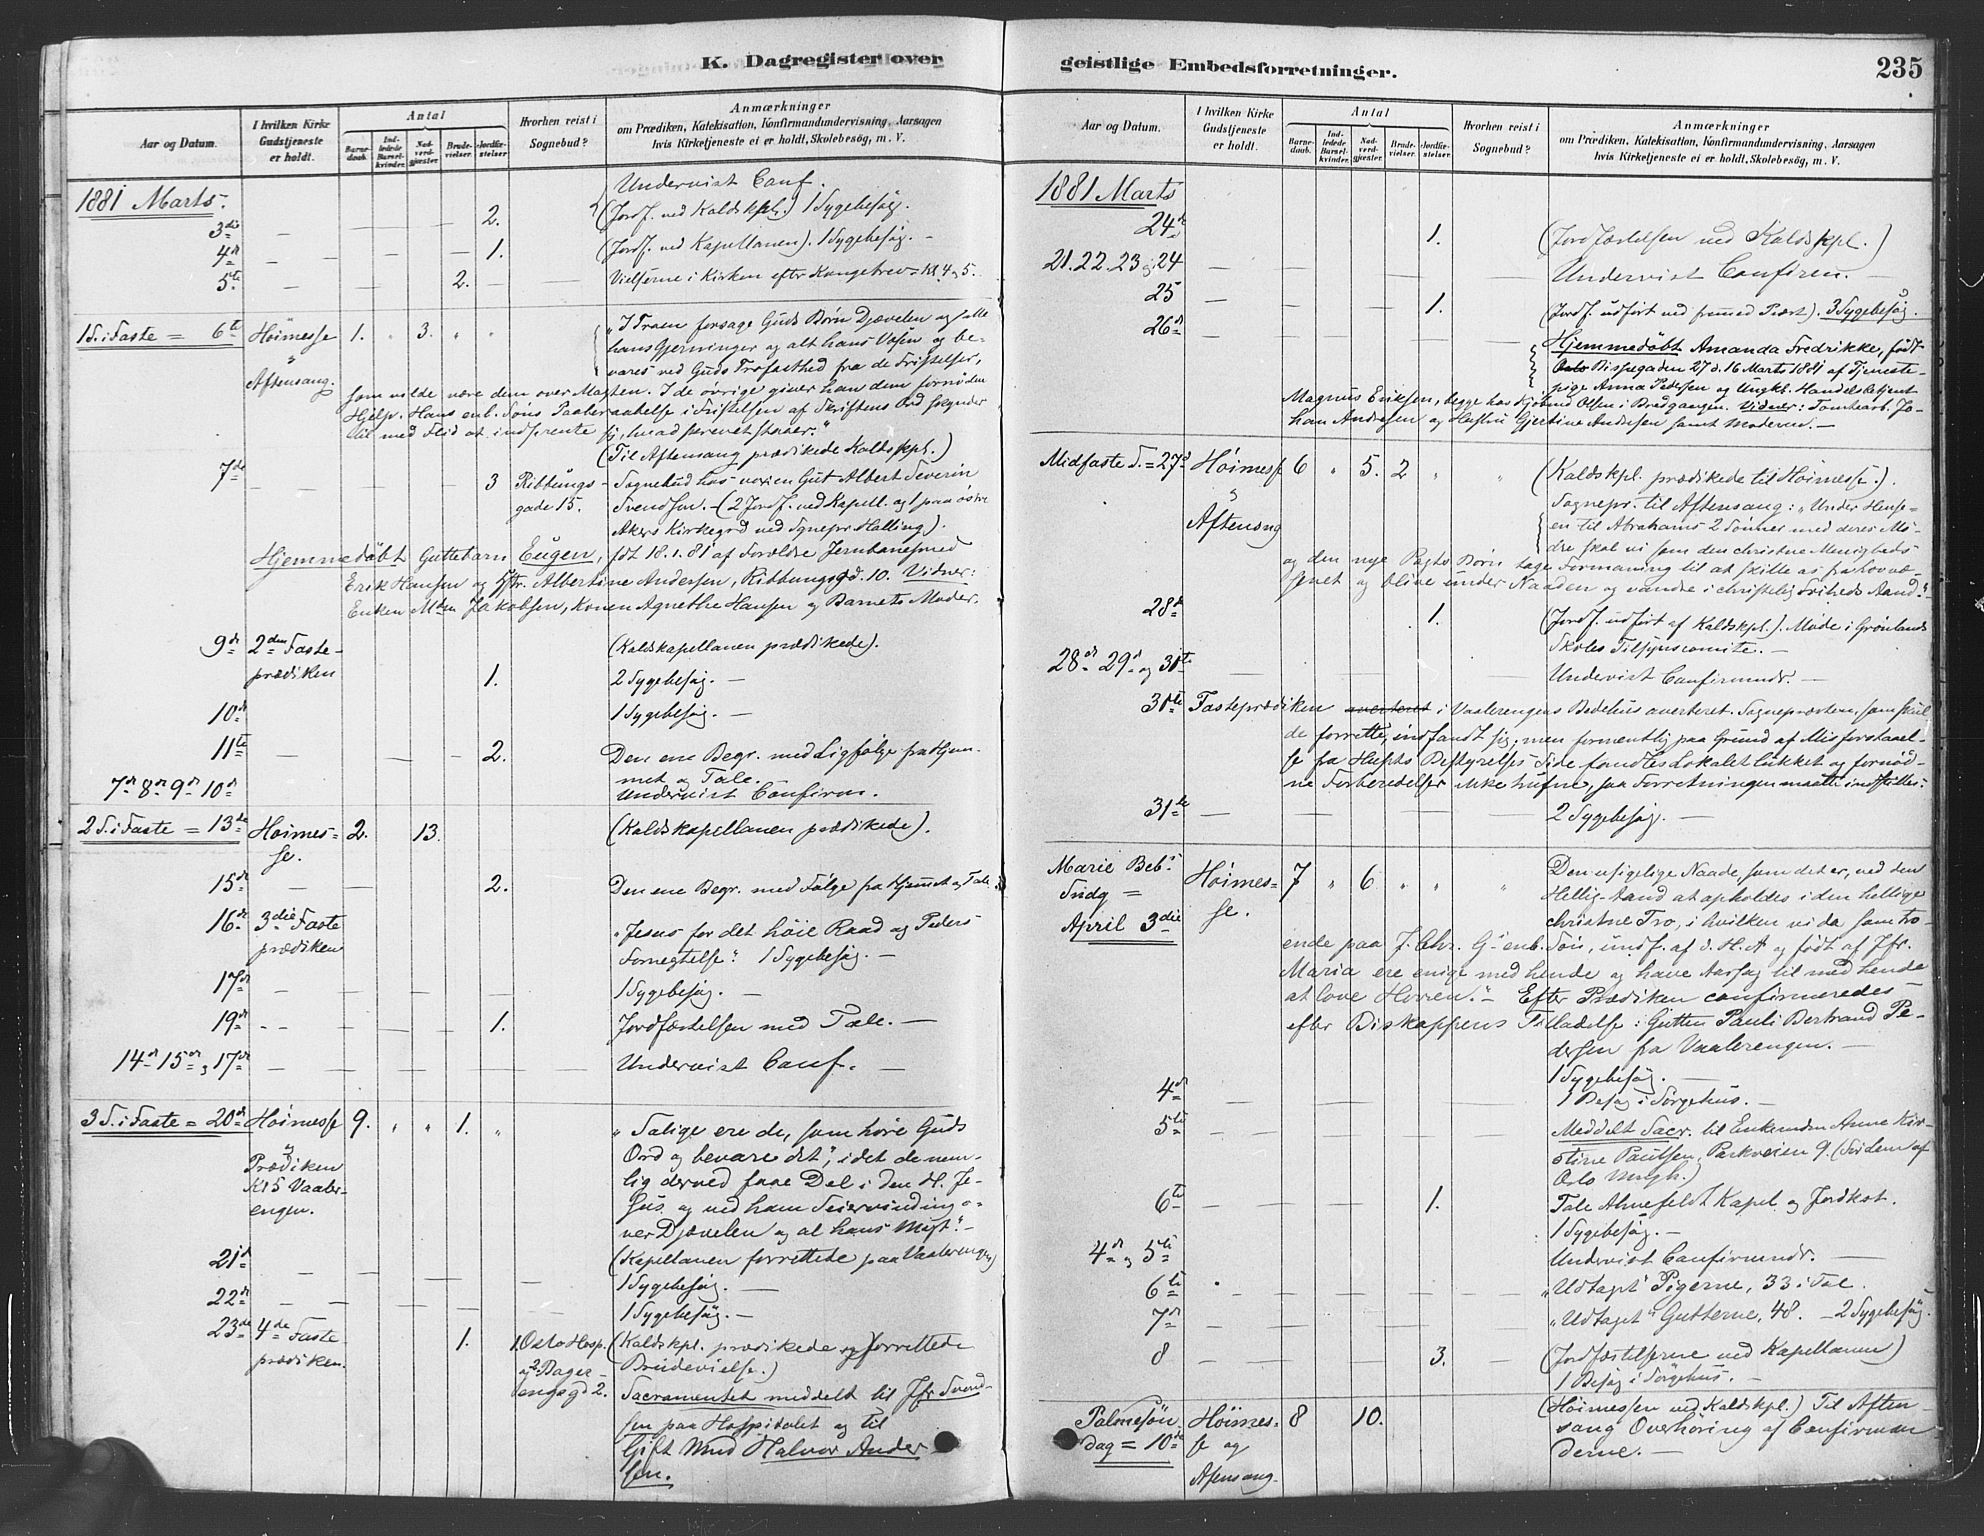 K. Dagregister over
Aar og Datum.
I hvilken Kirke Gudstjeneste er holdt.
Antal
Barne-daab.
Ind-ledede Barsel-kvinder.
Nad-verd-gjester.
Brude-vielser.
Jordfæ-stelser.
Hvorhen reist i Sognebud?
Anmærkninger
om Prædiken, Katekisation, Konfirmandundervisning, Aarsagen
hvis Kirketjeneste ei er holdt, Skolebesøg, m. V.
1881 Marts.
Undervist Conf.
3die — — — 2. (Jordf. ved Kaldskpl.) 1 Sygebesøg.
4de — — — 1. (Jordf. ved Kapellanen). 1 Sygebesøg. —
5te — — — 2. — Vielserne i Kirken efter Kl. 4 og 5.
1 S. i Faste = 6te Høimesse 1. " 3. " " "
„I Troen forsage Guds Børn Djævelen og alle
hans Gjerninger og alt hans Væsen og be-
vares ved Guds Trofasthed fra de Fristelser,
" Aftensang.
som vilde være dem over Magten. I de øvrige giver han dem fornøden
Hjelp. Hans enb. Søns Paaberaabelse i Fristelsen af Skriftens Ord skynder
til med Flid at indprente sig, hvad skrevet staaer."
(Til Aftensang prædikede Kaldskpl.)
7de — — — 3 Ribbungs-gade 15.
Sognebud hos voxen Gut Albert Severin
Svendsen. — (2 Jordf. ved Kapell. og 1 paa østre
Akers Kirkegrd ved Sgnepr Halling).
Hjemmedøbt Guttebarn Eugen, født 18.1.81 af Forældre Jernbanesmed
Erik Hansen og Hstr. Albertine Andersen, Ribbungsgd. 10. Vidner:
Enken Jakobsen, Konen Agnethe Hansen og Barnets Moder.
9de 2den Faste-prædiken (Kaldskapellanen prædikede).
1. 2 Sygebesøg. —
10de 1 Sygebesøg. —
11te — — — 2. Den ene Begr. med Ligfølge fra Hjem-
met og Tale.
7de 8de 9de 10de Undervist Confirm.
2 S. i Faste = 13de Høimes-se. 2. 13. (Kaldskapellanen prædikede).
15de — — 2. Den ene Begr. med Følge fra Hjemmet og Tale.
16de 3die Faste prædiken „Jesus for det høie Raad og Peders
Fornegtelse". 1 Sygebesøg. —
17de — — — 1 Sygebesøg. —
19de — — — 1. — Jordfæstelsen med Tale. —
14de 15de og 17de — — — Undervist Conf. —
3 S. i Faste = 20de Høimesse 9. " " 1. "
„Salige ere de, som høre Guds
Ord og bevare det", idet de nem-
lig derved faae Del i den H. Je-
sus og ved ham Seiervinding o-
ver Djævelen og al hans Magt." —
" Prædiken Kl 5 Vaaler-engen.
(Kapellanen forrettede paa Vaalerengen)
21de — — — 1 Sygebesøg. —
22de — — — 1 Sygebesøg. —
23de 4de Faste-prædiken. 1. 1. Oslo Hosp. og 2. Bager-engsgd 2.
(Kaldskpl. prædikede og forrettede
Brudevielse.)
Sacramentet meddelt til Jfr Svend-
sen paa Hospitalet og til
Gift Mand Halvor Ander
sen.
geistlige Embedsforretninger.
235
Aar og Datum.
I hvilken Kirke Gudstjeneste er holdt.
Antal
Barne-daab.
Ind-ledede Barsel-kvinder.
Nad-verd-gjester.
Brude-vielser.
Jordfæ-stelser.
Hvorhen reist i Sognebud?
Anmærkninger
om Prædiken, Katekisation, Konfirmandundervisning, Aarsagen
hvis Kirketjeneste ei er holdt, Skolebesøg, m. V.
1881 Marts
24de 1. (Jordfæstelsen ved Kaldskpl.)
21. 22. 23 og 24 — — — Undervist Confirm. —
25 — — — 1. — (Jordf. udført ved fremmed Præst). 3 Sygebesøg.
26de — — — Hjemmedøbt Amanda Fredrikke, født
Oslo Bispegaden 27 d. 16 Marts 1881 af Tjeneste-
pige Anna Pedersen og Ungk. Handelsbetjent
Magnus Eriksen, begge hos Kjøbmd Olsen i Brodgangen. Vidner: Tomtearb. Jo-
han Andresen og Hustru Gjertine Andersen samt Moderen. —
Midfaste S. = 27de Høimesse 6 " 5. 2 " " (Kaldskpl. prædikede til Høimesse.)
" Aftensang
Sognepr. til Aftensang: „Under Hense-
en til Abrahams 2 Sønner med deres Mø-
dre skal vi som den christne Menigheds
og den nye Pagts Børn tage Formaning til at skille os fra Lovvæ-
senet og blive under Naaden og vandre i christelig Friheds Aand." —
28de 1. (Jordf. udført af Kaldskpl.). Møde i Grønlands
Skoles Tilsynscomite. —
28de 29de og 31te — — — Undervist Confirmndr. —
30te Fasteprædiken averteret i Vaalerengens Bedehus averteret. Sognepræsten, som skul
de forrette, indfandt sig, men formentlig paa Grund af Misforstaael-
se fra Husets Bestyrelses Side fandtes Lokalet lukket og fornød-
ne Forberedelser ikke trufne, saa Forretningen maatte indstilles.
31te — — — 2 Sygebesøg. —
Marie Beb.s Sndg = April 3die Høimes-se. 7 " 6 " " "
Den usigelige Naade, som det er, ved den
Hellig-Aand at opholdes i den hellige
christne Tro, i hvilken vi da som tro-
ende paa J. Chr. G.s enb. Søn, undf. af d. H. A og født af Jfr.
Maria ere enige med hende og have Aarsag til med hende
at love Herren." — Efter Prædiken confirmeredes —
efter Biskoppens Tilladelse: Gutten Pauli Bertrand Pe-
dersen fra Vaalerengen. —
1 Sygebesøg. —
4de — — — 1 Besøg i Sørgehus. —
5te — — — Meddelt Sacr. til Enkemdm Anne Kir-
stine Paulsen, Parkveien 9. (Tvidem af
Oslo Mngh.)
6te — — — 1. — Tale Ahnefeldt Kapel og Jordkst.
1 Sygebesøg. —
4de og 5te Undervist Confirmndr. —
6te — — — „Udtaget" Pigerne, 33 i Tal.
7de — — — „Udtaget" Gutterne, 48. — 2 Sygebesøg.
8 — — — 3. — (Jordfæstelserne ved Kapellanen)
1 Besøg i Sørgehus. —
Palmesøn-dag = 10de Høimes-se og Aftensang 8 10.
(Høimessen ved Kaldskpl.) Til Aften-
sang Overhøring af Confirman
derne. —